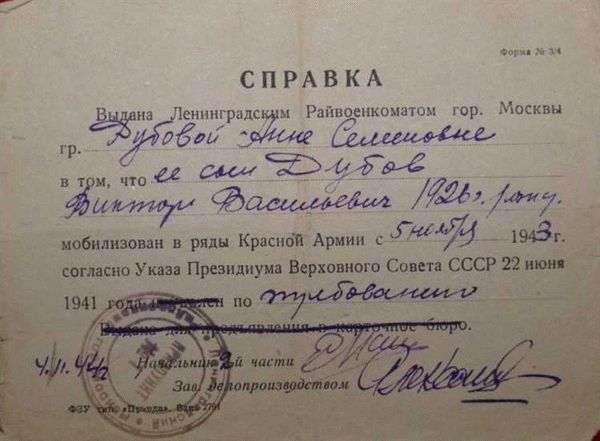 Форма № 3/4
СПРАВКА
Выдана Ленинградским Райвоенкоматом гор. Москвы
гр. Дубовой Анне Семеновне
в том, что ее сын Дубов
Виктор Васильевич 1926 г. рожд.
мобилизован в ряды Красной Армии с 5 ноября 1943 г.
согласно Указа Президиума Верховного Совета СССР 22 июня
1941 года по требованию
Выдана для предъявления в карточное бюро.
Начальник 2-й части
Зав. делопроизводством
ФЗУ тип. «Правда». Зак. 2791